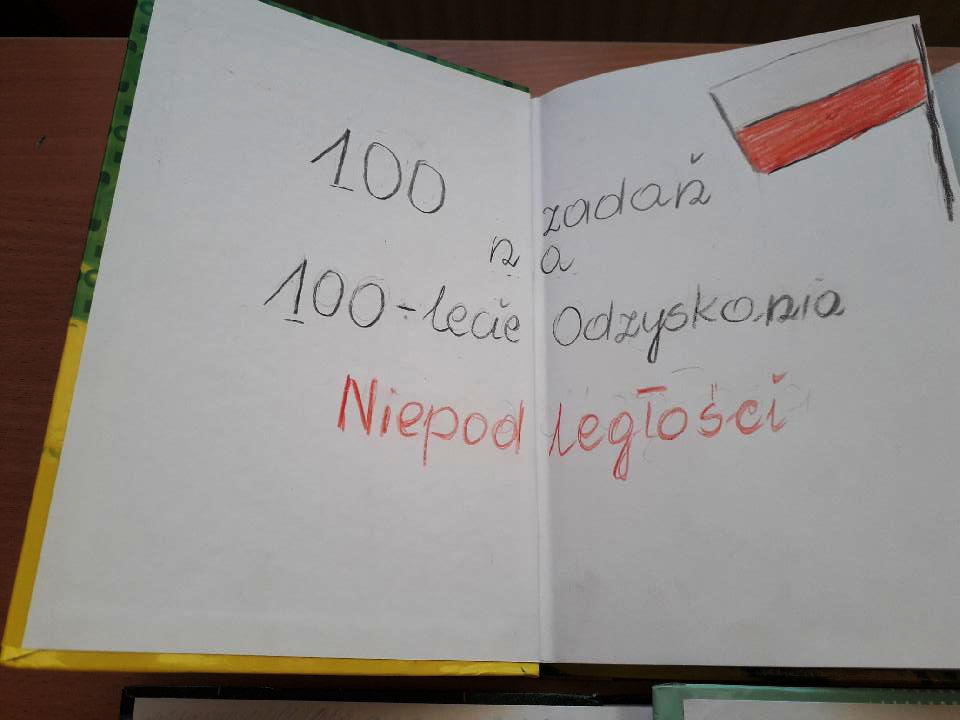 100 zadań
na
100-lecie Odzyskania
Niepodległości